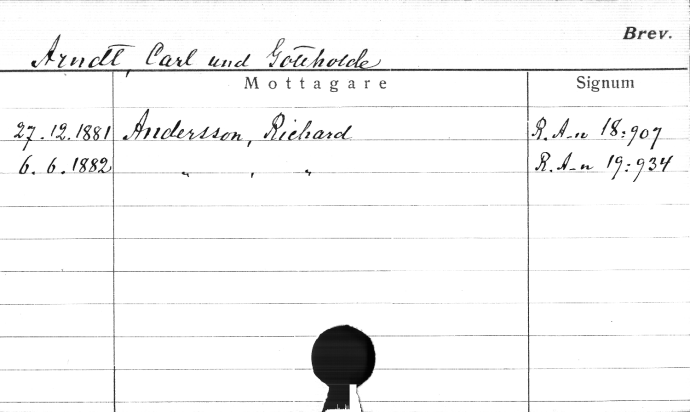 Brev.
Arndt, Carl und Gotthold
Mottagare Signum
27.12.1881 Andersson, Richard R. A-n 18:907
6.6.1882 " , " R. A-n 19:934